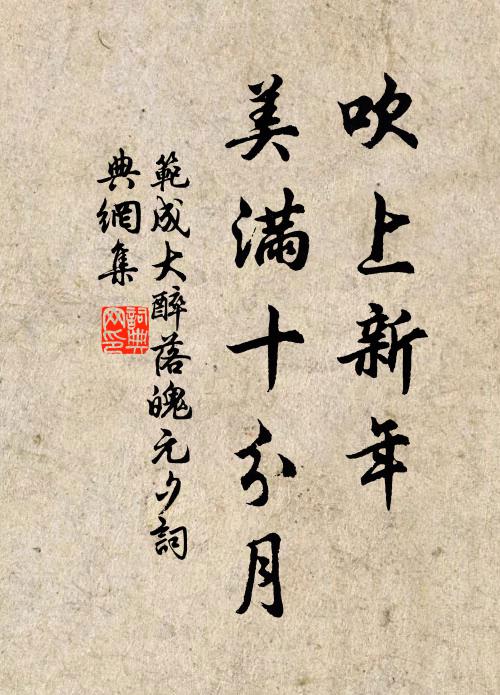 吹上新年
美滿十分月
範成大醉落魄元夕詞
典網集
詞典
网印